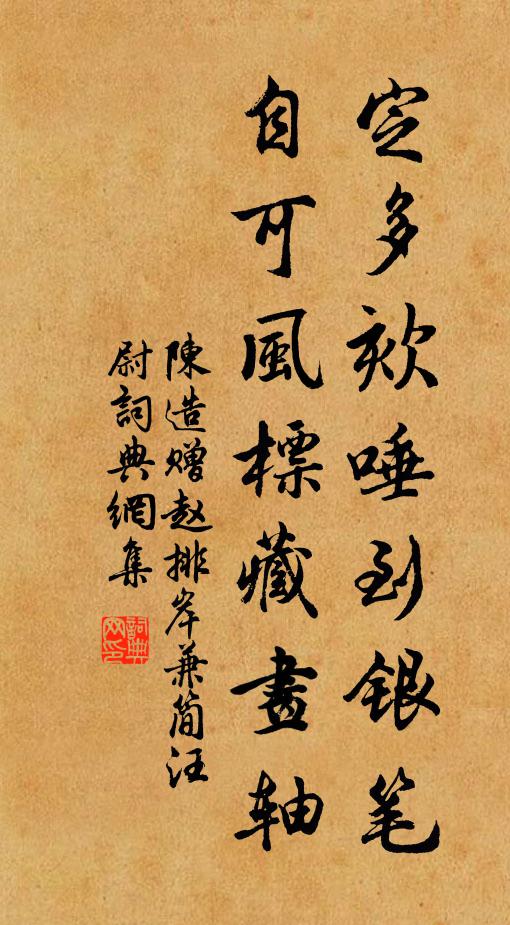 定多欬唾到银笔
自可風標藏畫轴
陳造赠赵排岸兼简汪
尉詞典網集
詞典网印